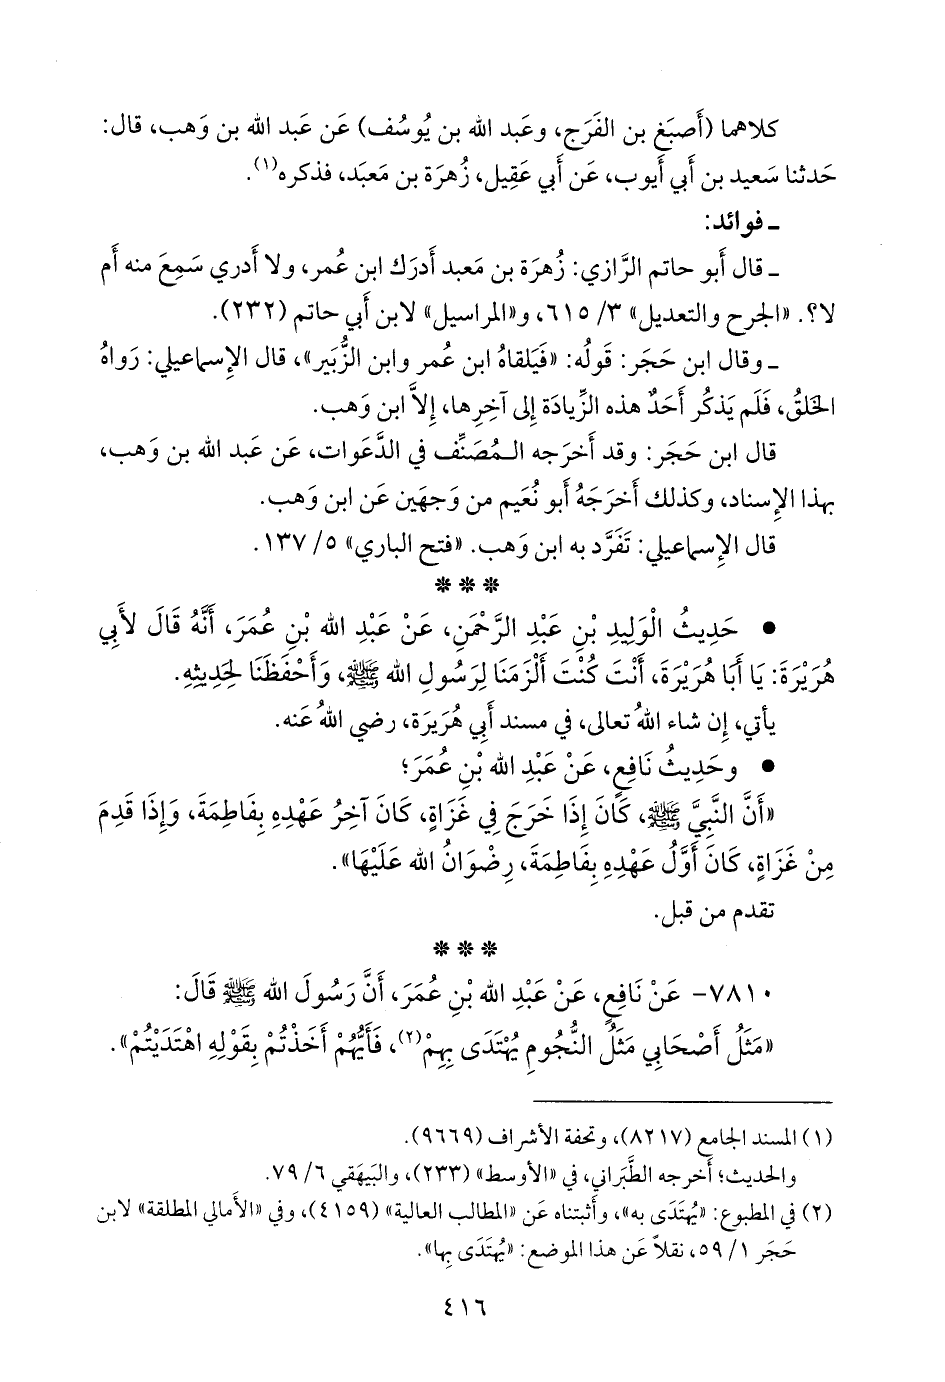 كلاهما (أَصبَغ بن الفَرَج، وعَبد الله بن يُوسُف) عَن عَبد الله بن وَهب، قال:
حَدثنا سَعيد بن أَبي أَيوب، عَن أَبي عَقِيل، زُهرَة بن مَعبَد، فذكره(١).
ـ فوائد:
ـ قال أَبو حاتم الرَّازي: زُهرَة بن مَعبد أَدرَك ابن عُمر، ولا أَدري سَمِعَ منه أَم
لا؟. «الجرح والتعديل» ٣/ ٦١٥، و«المراسيل» لابن أَبي حاتم (٢٣٢).
ـ وقال ابن حَجَر: قَولُه: «فَيَلقاهُ ابن عُمر وابن الزُّبَير»، قال الإِسماعيلي: رَواهُ
الخَلقُ، فَلَم يَذكُر أَحَدٌ هذه الزِّيادَة إِلى آخِرِها، إِلاَّ ابن وَهب.
قال ابن حَجَر: وقد أَخرَجه الـمُصَنِّف في الدَّعَوات، عَن عَبد الله بن وَهب،
بهذا الإِسناد، وكذلك أَخرَجَهُ أَبو نُعَيم من وَجهَين عَن ابن وَهب.
قال الإِسماعيلي: تَفَرَّد به ابن وَهب. «فتح الباري» ٥/ ١٣٧.
* * *
• حَدِيثُ الْوَلِيدِ بْنِ عَبْدِ الرَّحْمَنِ، عَنْ عَبْدِ الله بْنِ عُمَرَ، أَنَّهُ قَالَ لأَبِي
هُرَيْرَةَ: يَا أَبَا هُرَيْرَةَ، أَنْتَ كُنْتَ أَلْزَمَنَا لِرَسُولِ الله ﷺ، وَأَحْفَظَنَا لِحَدِيثِهِ.
يأتي، إِن شاء اللهُ تعالى، في مسند أَبي هُرَيرَة، رضي اللهُ عَنه.
• وحَدِيثُ نَافِعٍ، عَنْ عَبْدِ الله بْنِ عُمَرَ؛
«أَنَّ النَّبِيَّ ﷺ، كَانَ إِذَا خَرَجَ فِي غَزَاةٍ، كَانَ آخِرُ عَهْدِهِ بِفَاطِمَةَ، وَإِذَا قَدِمَ
مِنْ غَزَاةٍ، كَانَ أَوَّلُ عَهْدِهِ بِفَاطِمَةَ، رِضْوَانُ الله عَلَيْهَا».
تقدم من قبل.
* * *
٧٨١٠- عَنْ نَافِعٍ، عَنْ عَبْدِ الله بْنِ عُمَرَ، أَنَّ رَسُولَ الله ﷺ قَالَ:
«مَثَلُ أَصْحَابِي مَثَلُ النُّجُومِ يُهْتَدَى بِهِمْ(٢)، فَأَيُّهُمْ أَخَذْتُمْ بِقَوْلِهِ اهْتَدَيْتُمْ».
(١) المسند الجامع (٨٢١٧)، وتحفة الأشراف (٩٦٦٩).
والحديث؛ أَخرجه الطَّبَراني، في «الأَوسط» (٢٣٣)، والبَيهَقي ٦/ ٧٩.
(٢) في المطبوع: «يُهتَدَى به»، وأَثبتناه عَن «المطالب العالية» (٤١٥٩)، وفي «الأَمالي المطلقة» لابن
حَجَر ١/ ٥٩، نقلاً عَن هذا الموضع: «يُهتَدَى بها».
٤١٦